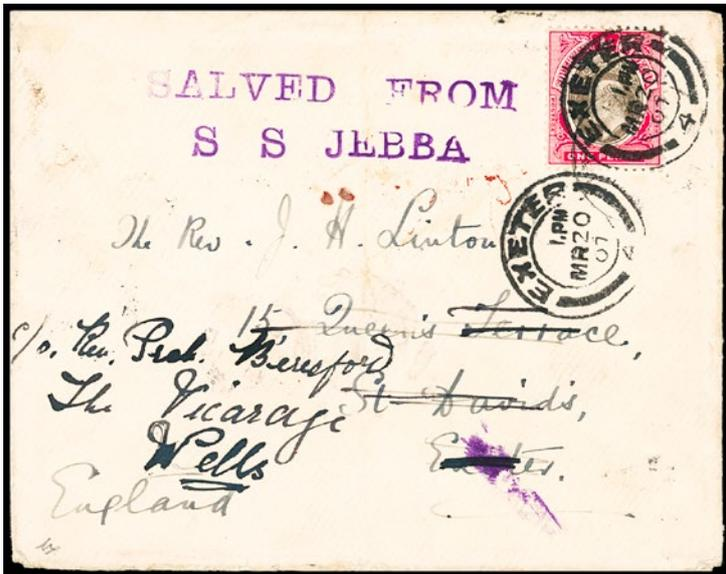 SALVED FROM
S S JEBBA
ONE PE
EXETER
1. PM
MR 20
07
4
EXETER
1. PM
MR 20
07
4
The Rev. J. H. Linton
15 Queen's Terrace,
St. Davids,
Exeter.
c/o. Rev. Preb. Beresford
The Vicarage
Wells
England